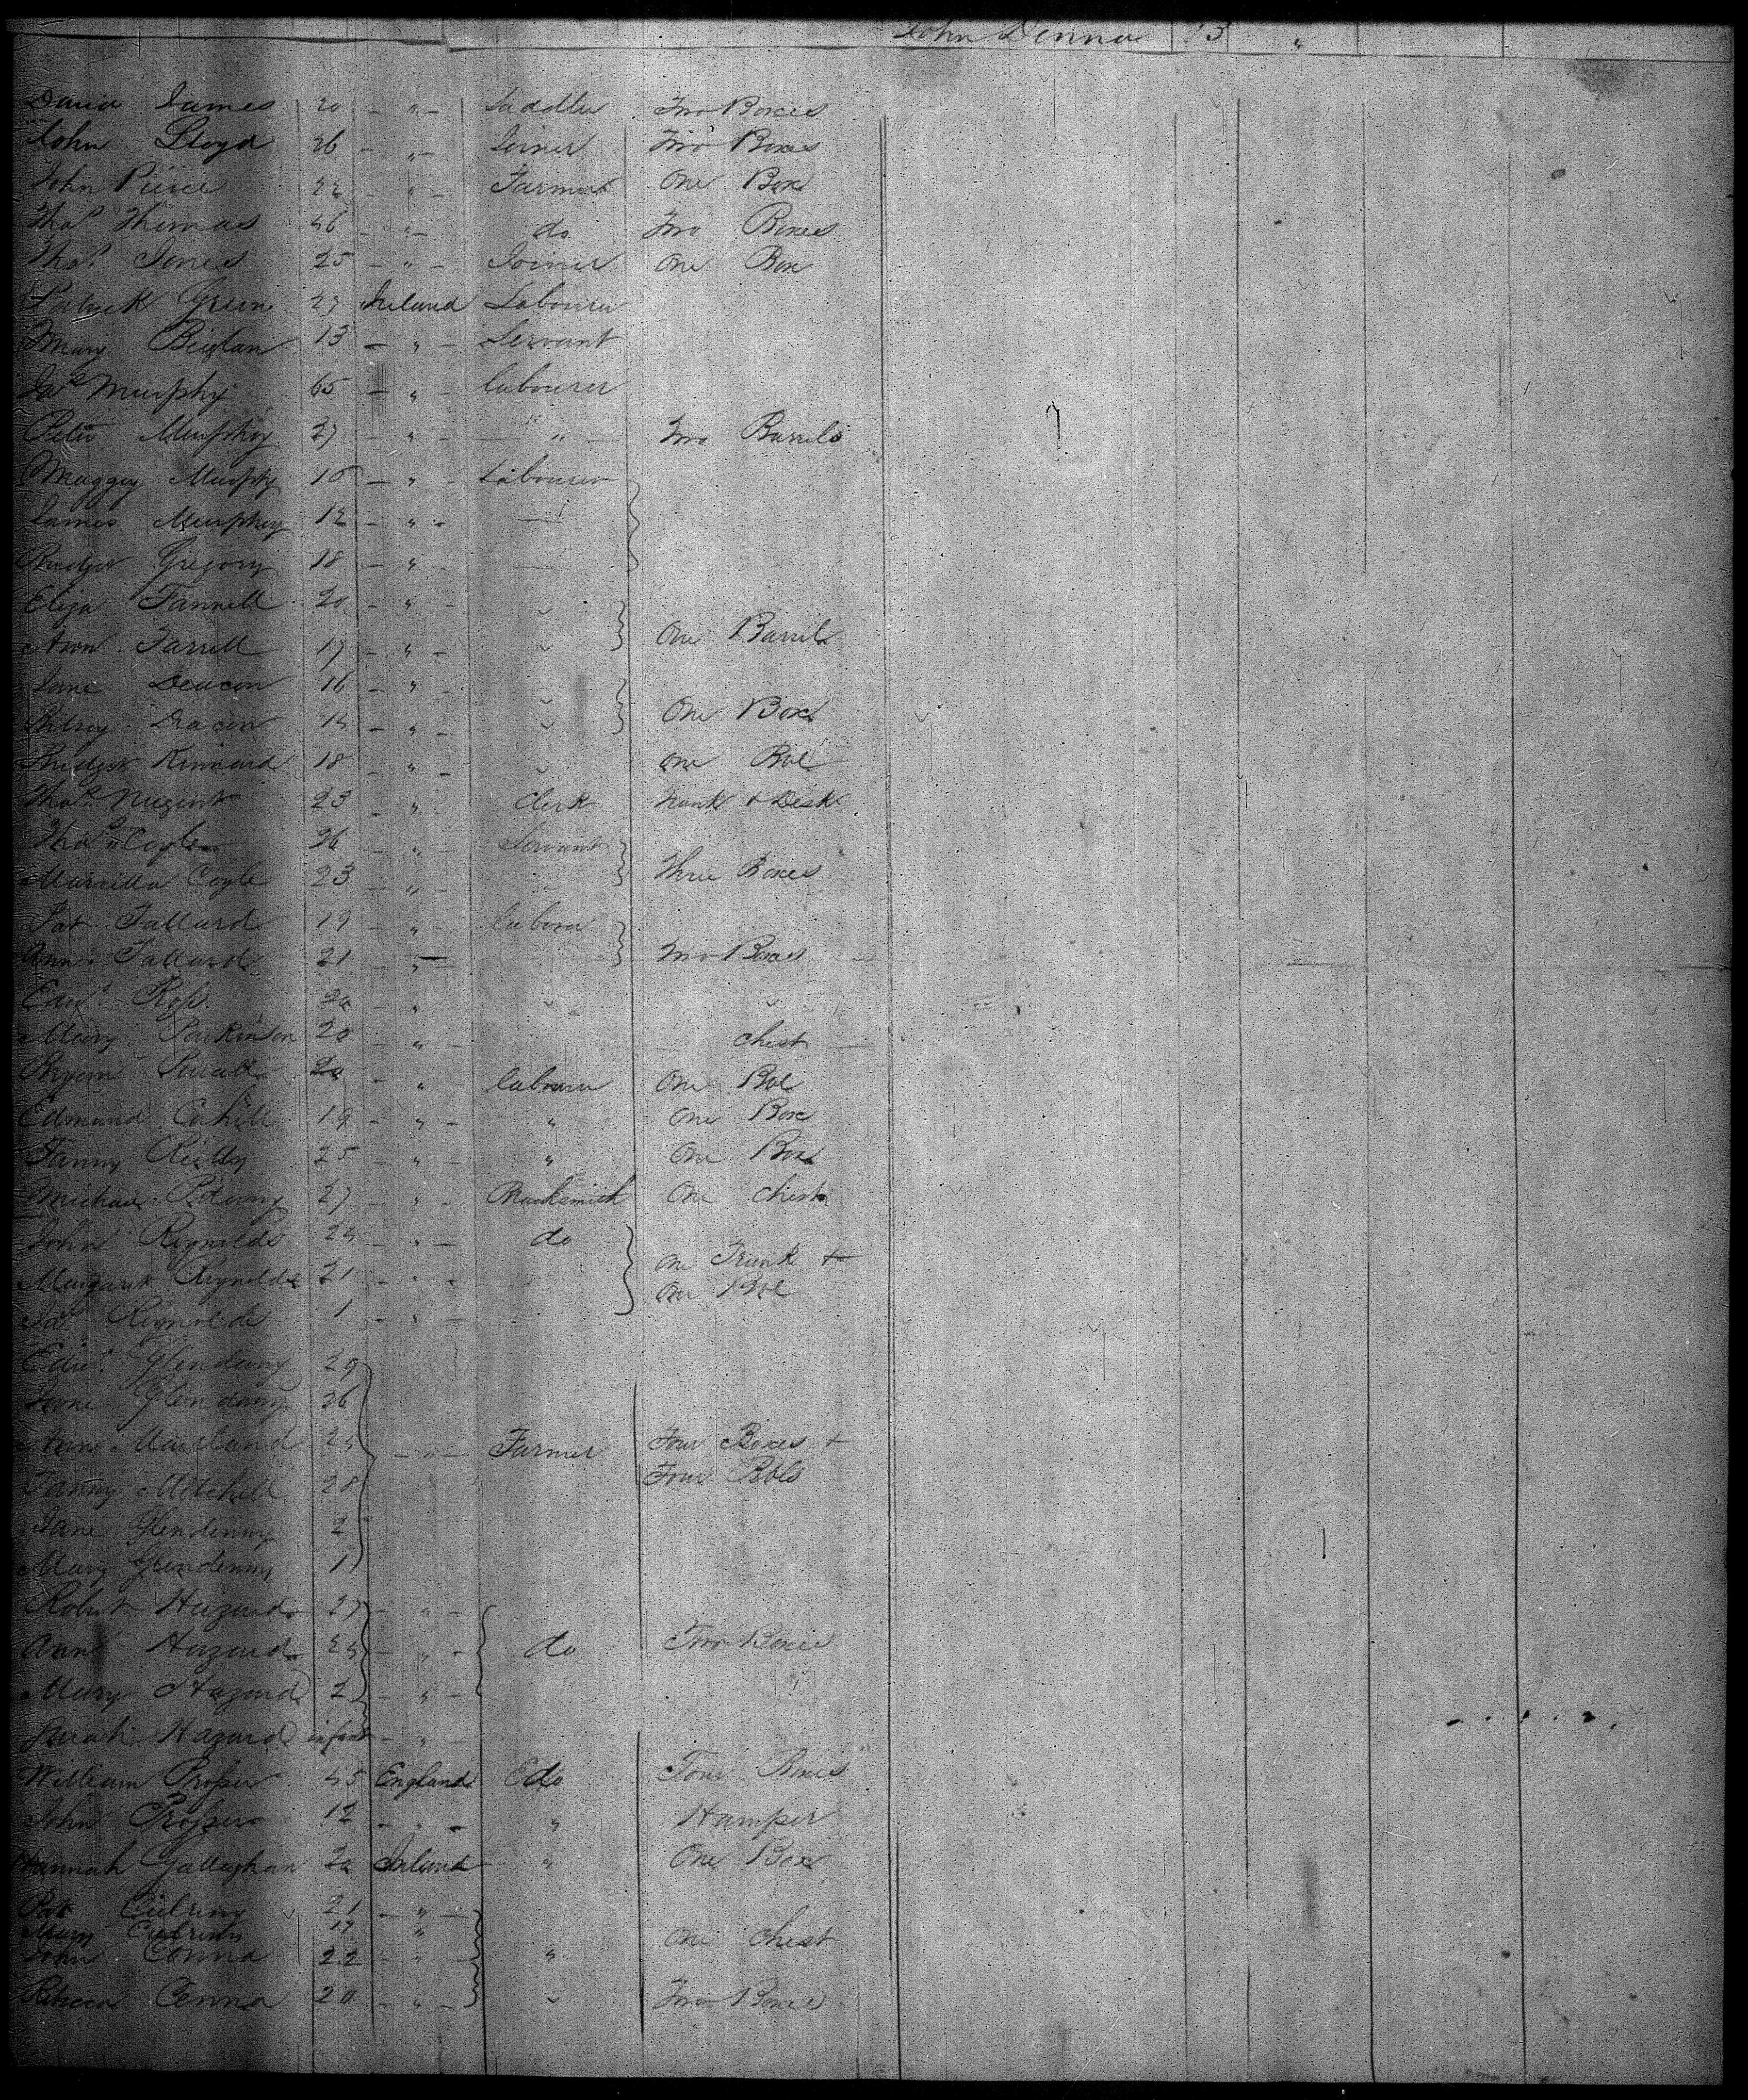 John Denna 13 "
David James 20 - " - Saddler Two Boxes
John Lloyd 26 - " - Joiner Two Boxes
John Pierce 22 - " - Farmer One Box
Thos Thomas 46 - " - do Two Boxes
Thos Jones 25 - " - Joiner One Box
Patrick Green 27 Ireland Labourer
Mary Biglan 13 - " - Servant
Jas Murphy 65 - " - labourer
Peter Murphy 27 - " - - " - Two Barrels
Maggy Murphy 16 - " - Labourer
James Murphy 12 - " -
Bridget Gregory 18 - " -
Eliza Farrell 20 - " -
Ann Farrell 17 - " - One Barrel
Jane Deacon 16 - " -
Betsy Deacon 14 - " - One Box
Bridget Kinnard 18 - " - One Bbl
Thos Nugent 23 - " Clerk Trunk & Desk
Thos Coyle 26 - " - Servant
Marcella Coyle 23 - " - Three Boxes
Pat Tallard 19 - " - labour
Ann Tallard 21 - " - Two Boxes
Edwd Ross 20 - "
Mary Parkinson 20 - " - Chest
20 - " labourer One Bbl
Edmund Cahill 19 - " - " One Box
Fanny Reilly 25 - " - " One Box
Michael 27 " - Blacksmith One Chest
John Reynolds 24 - " - do
Margaret Reynolds 21 - " - One Trunk &
One Bbl
Jas Reynolds 1 - " -
Edwd Glendenny 29
Glendenny 26
Ann 24 - " - Farmer Four Boxes &
Fanny Mitchell 28 Four Bbls
Jane Glendenny 2
Mary Glendenny 1
Robert Hazard 27 - " -
Ann Hazard 24 - " - do Two Boxes
Mary Hazard 2 - " -
Sarah Hazard infant - " -
William Prosser 45 England do Four Boxes
John Prosser 12 - " - " Hamper
Hannah Gallaghan 20 Ireland " One Box
Pat Culreny 21 - " -
Mary Culreny 17 " One Chest
John Cenna 22 - " - "
Rebecca Cenna 20 - " - Two Boxes